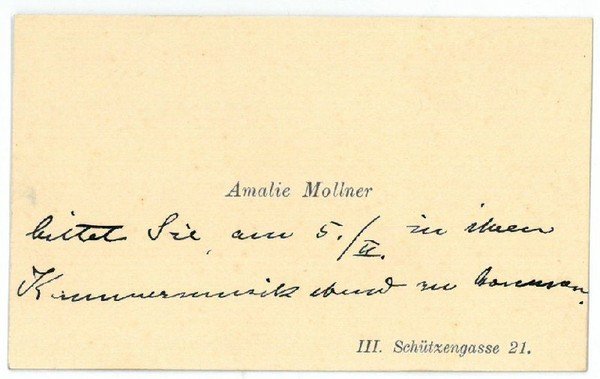 Amalie Mollner
bittet Sie, am 5./II. zu ihrem
Kammermusikabend zu kommen.
III. Schützengasse 21.